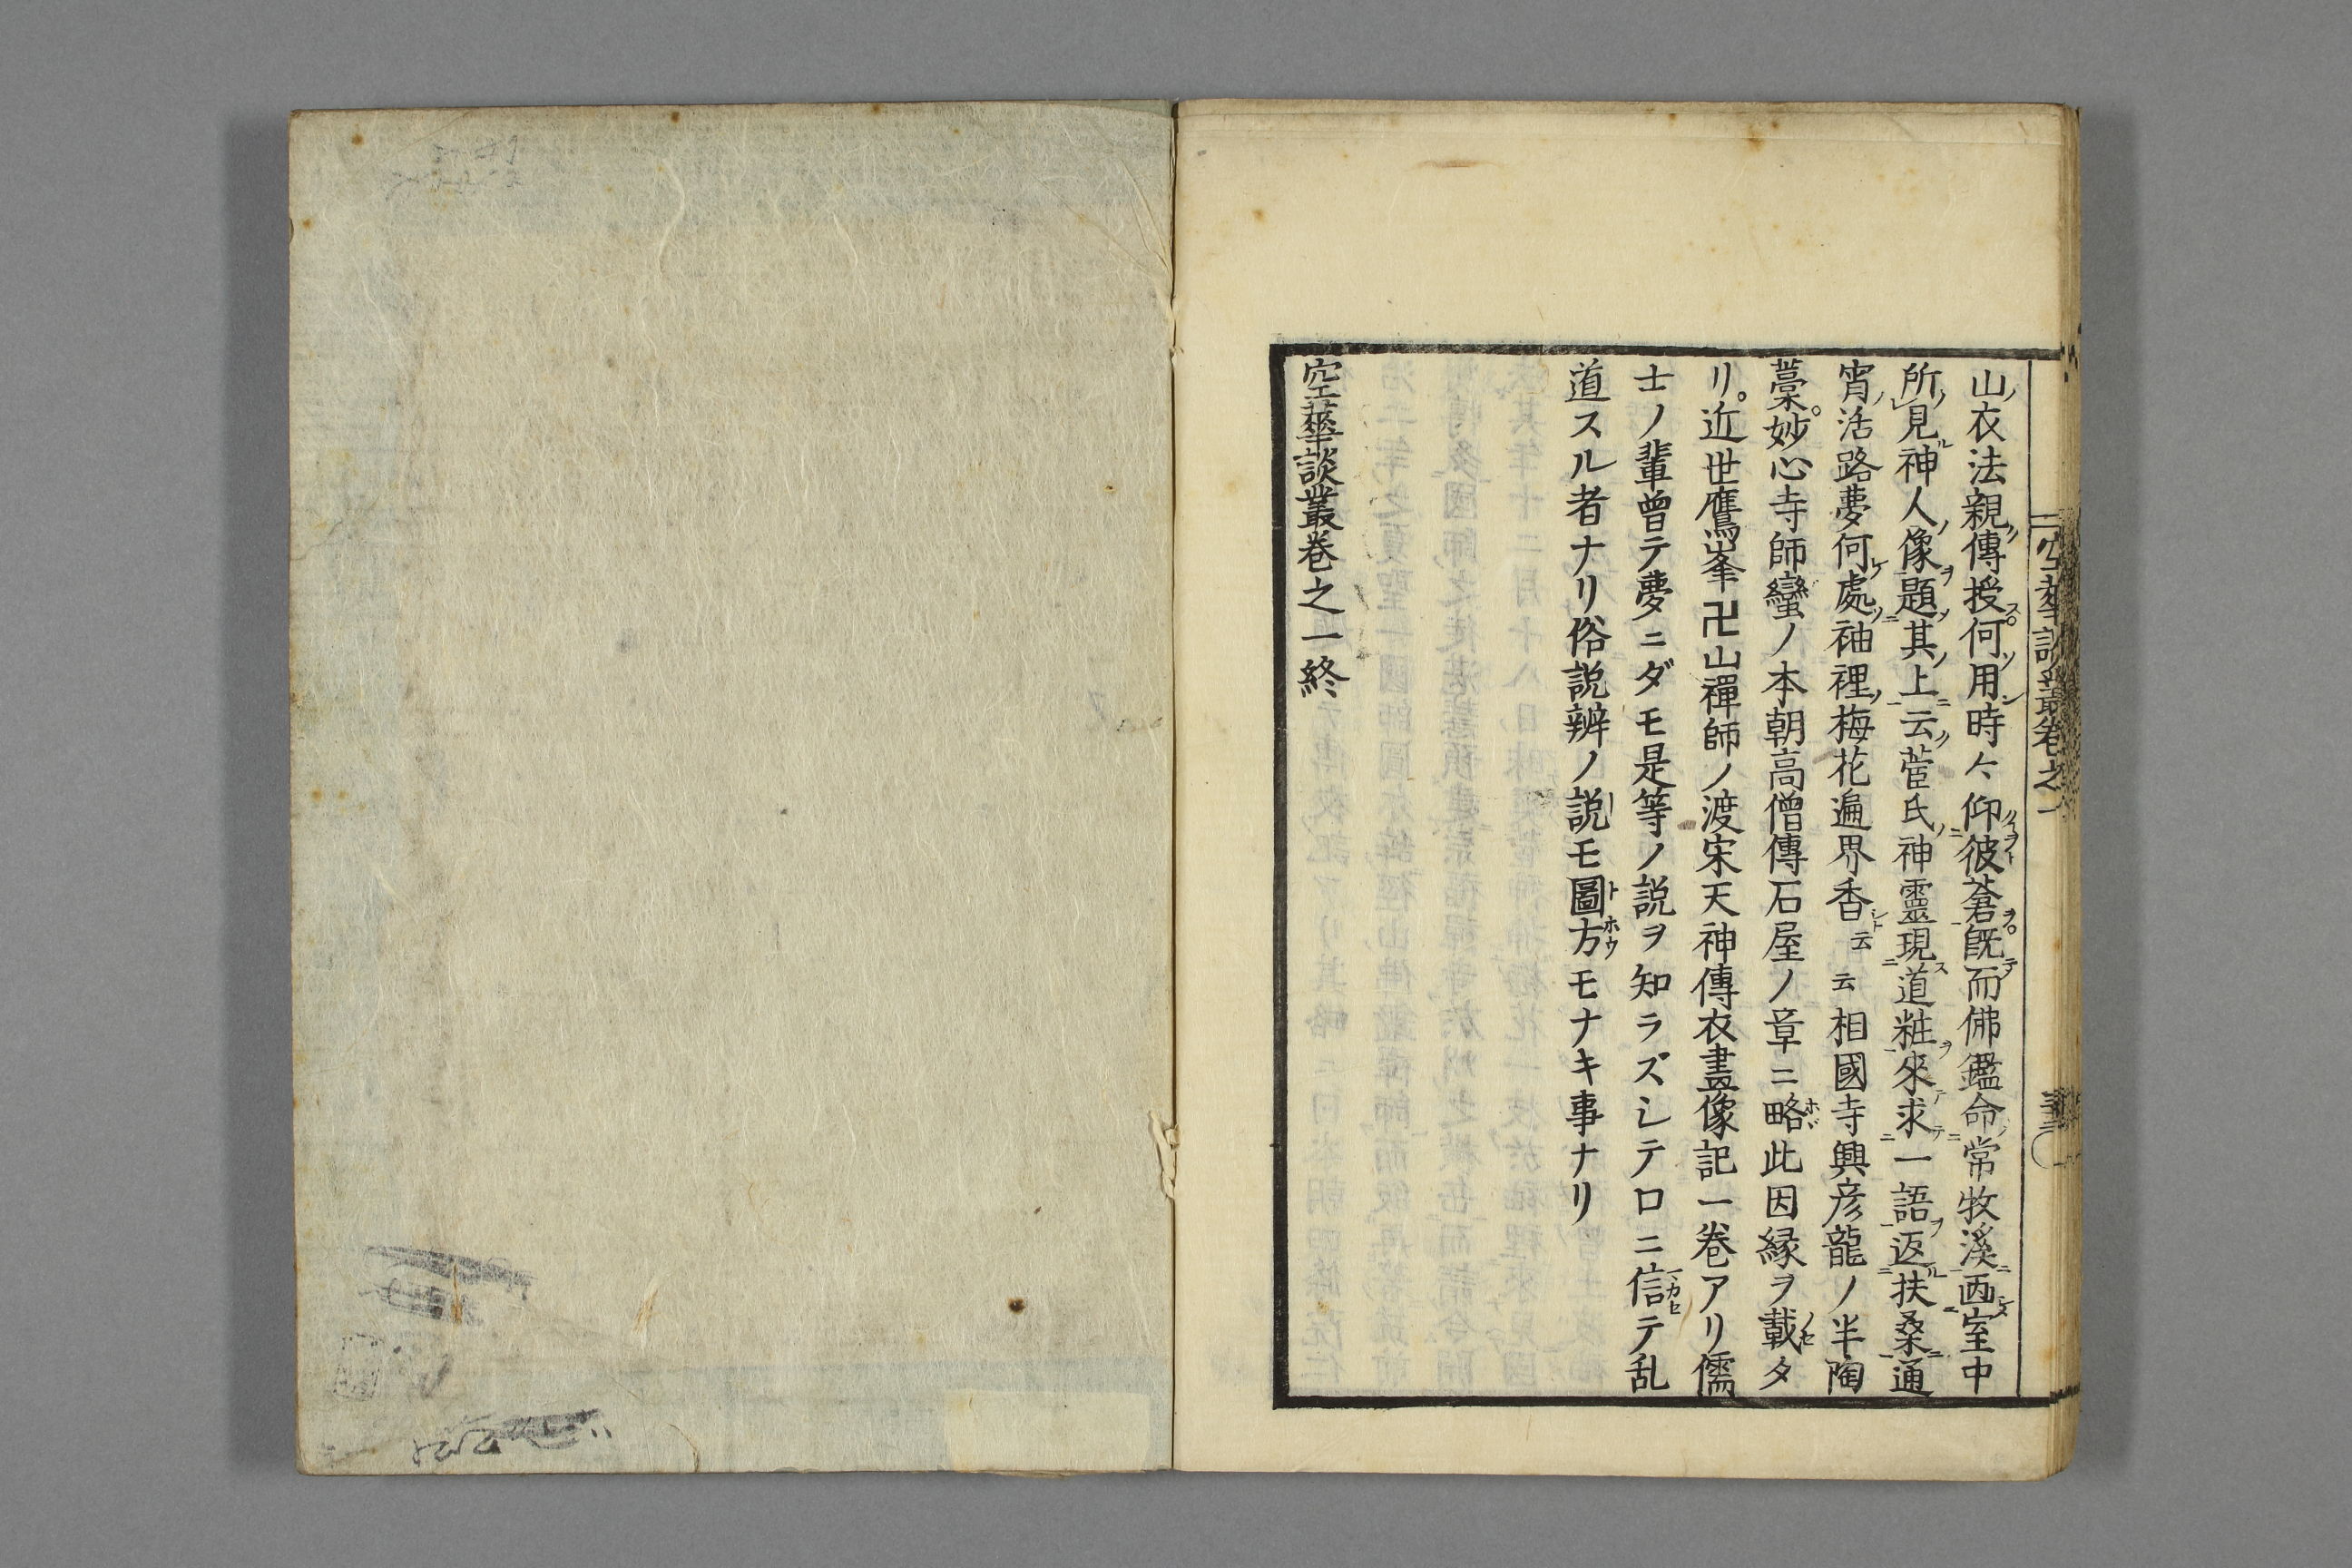 空華談叢卷之一
山衣法親傳授何用時々仰彼蒼既而佛鑑命常牧溪西室中
所見神人像題其上云菅氏神靈現道粧來求一語返扶桑通
宵活路夢何處袖裡梅花遍界香云云相國寺興彦龍ノ半陶
藁。妙心寺師蠻ノ本朝高僧傳石屋ノ章ニ略此因縁ヲ載タ
リ。近世鷹峯卍山禪師ノ渡宋天神傳衣畫像記一巻アリ儒
士ノ輩曽テ夢ニダモ是等ノ説ヲ知ラズシテロニ信テ乱
道スル者ナリ俗説辨ノ説モ圖方モナキ事ナリ
空華談叢巻之一終